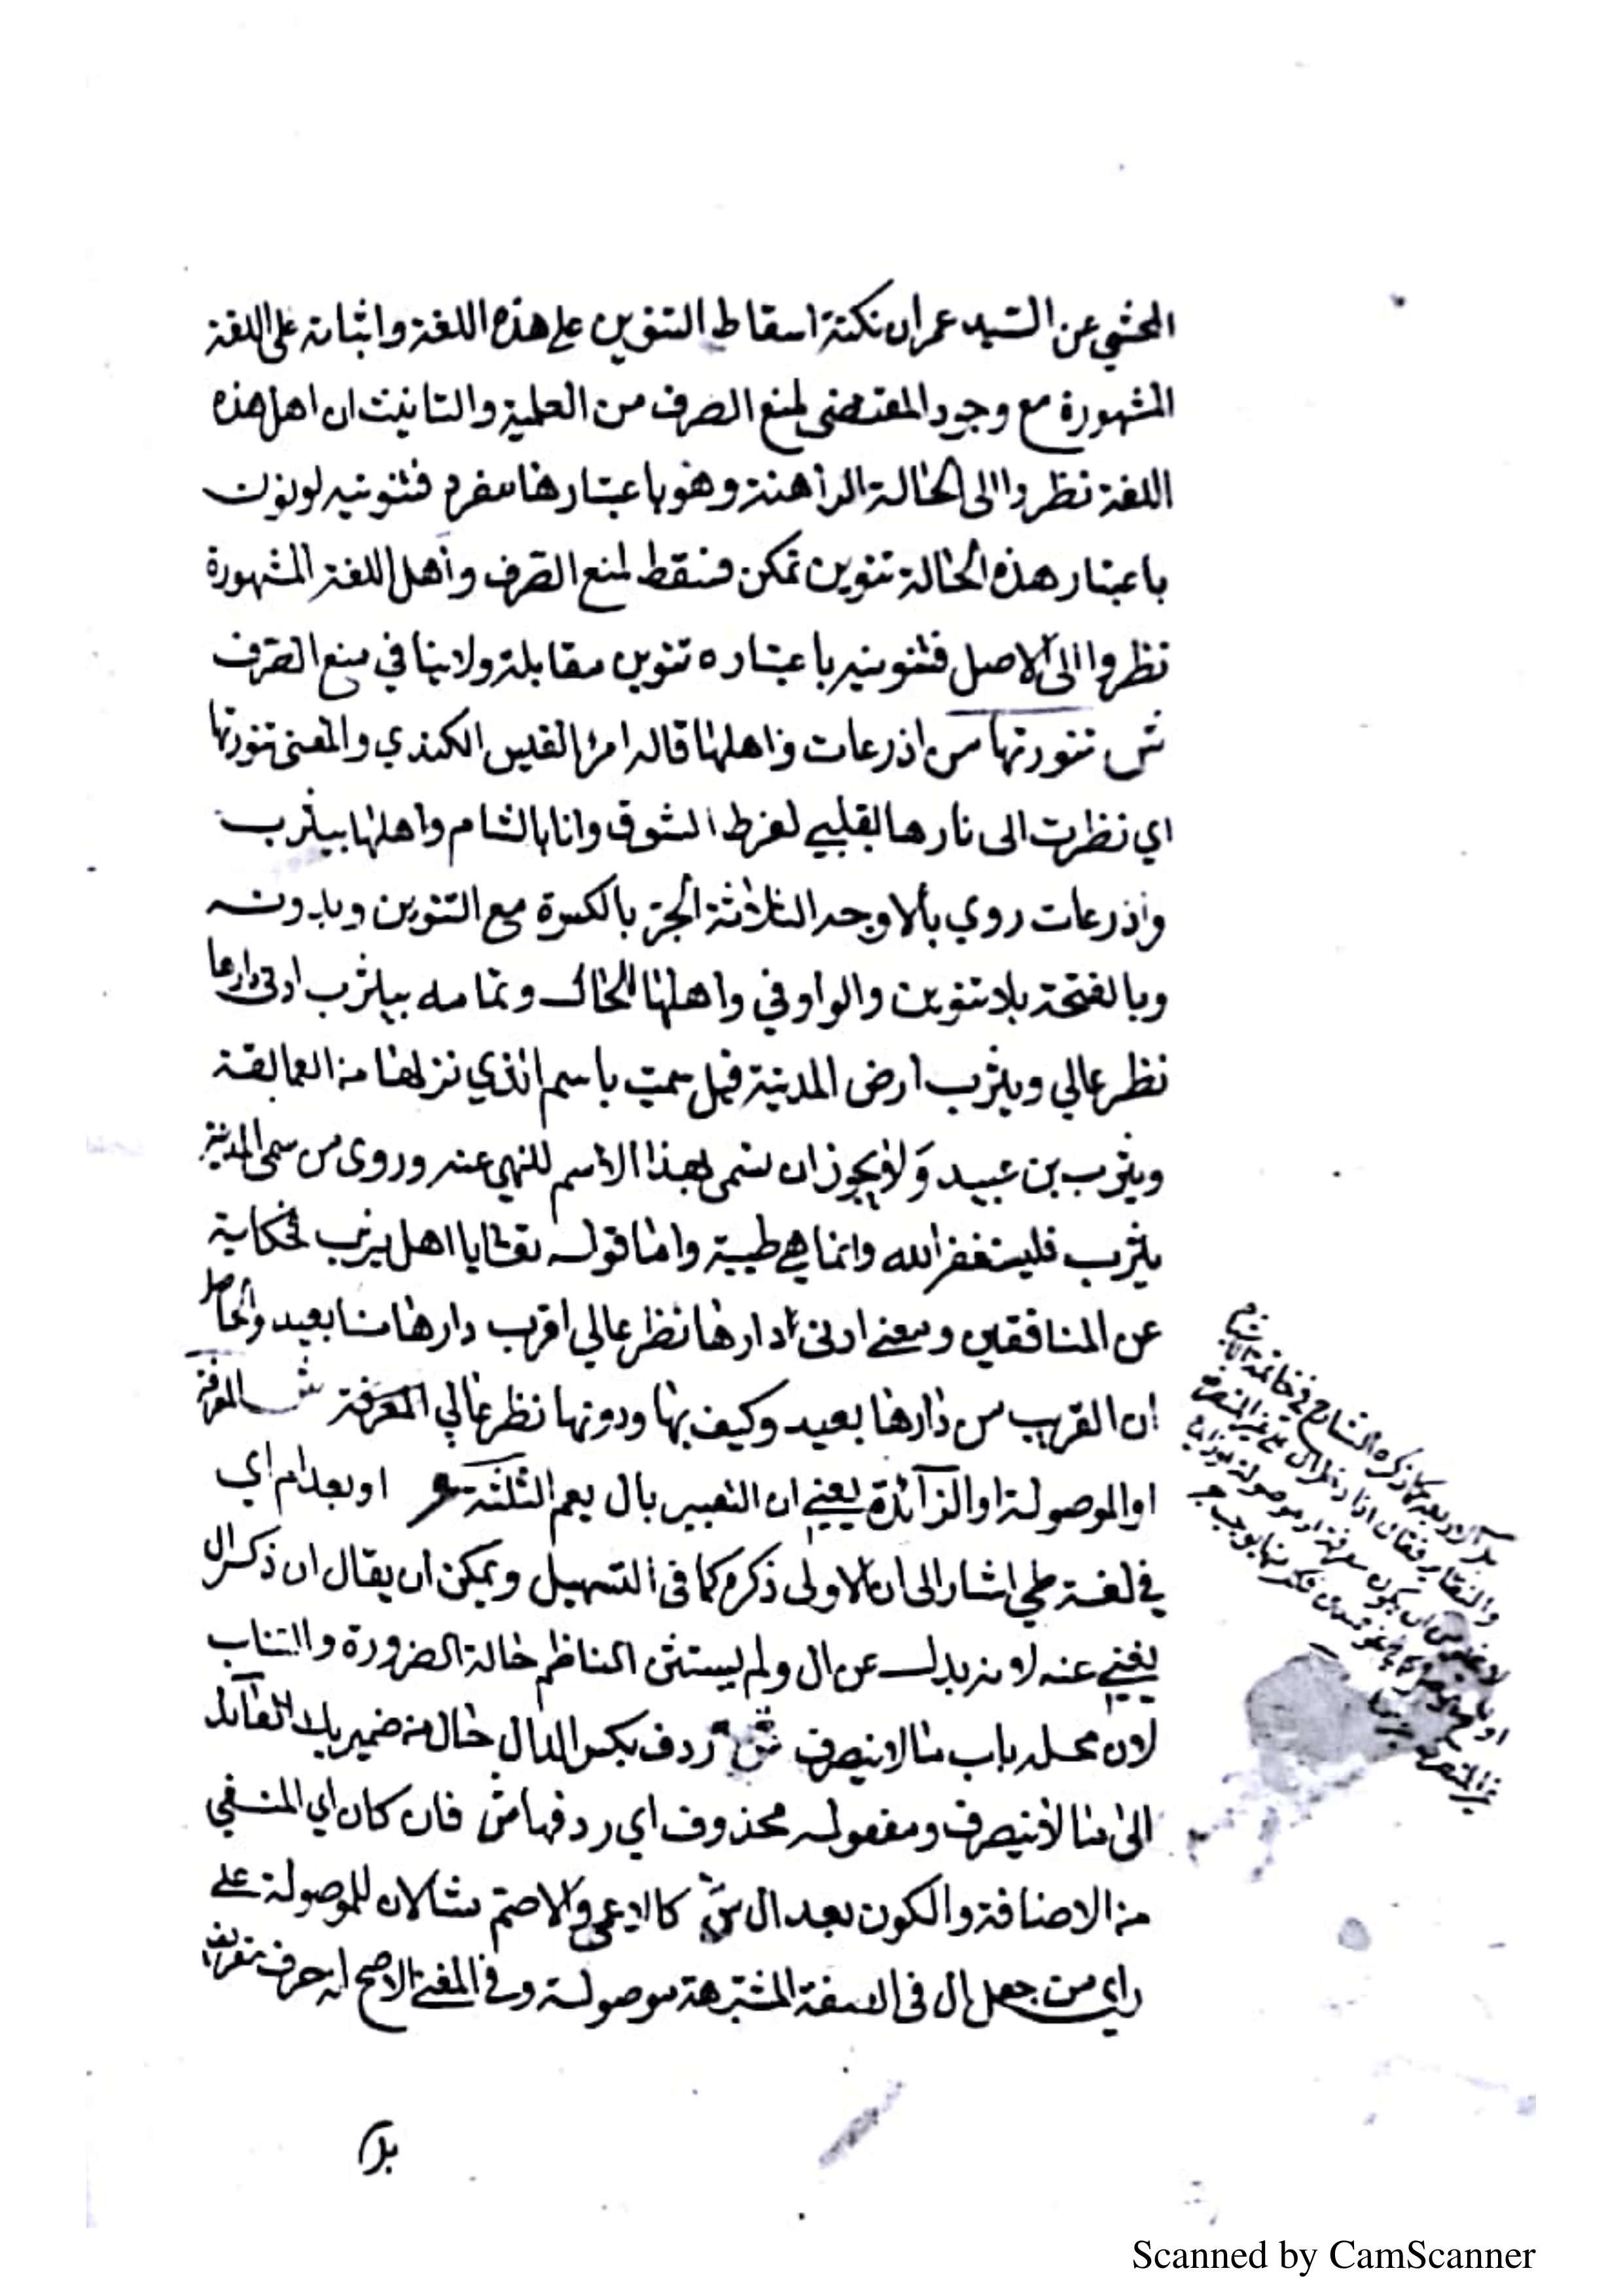 المحشي عن السيد عمران نكتة اسقاط التنوين على هذه اللغة واثباته على اللغة
المشهورة مع وجود المقتضى لمنع الصرف من العلمية والتانيث ان اهل هذه
اللغة نظروا الى الحالة الراهنة وهو باعتبارها مفرد فتنوينه لو نون
باعتبار هذه الحالة تنوين تمكن فسقط لمنع الصرف وأهل اللغة المشهورة
نظروا الى الاصل فتنوينه باعتباره تنوين مقابلة ولا ينافي منع الصرف
ش تنورتها من اذرعات واهلها قاله امرؤ القيس الكندي والمعنى تنورتها
اي نظرت الى نارها بقلبي لفرط الشوق وانا بالشام واهلها بيثرب
واذرعات روي بالاوجه الثلاثة الجر بالكسرة مع التنوين وبدونه
وبالفتحة بلا تنوين والواو في واهلها للحال وتمامه بيثرب ادنى دارها
نظر عالي ويثرب ارض المدينة قيل سميت باسم الذي نزلها من العمالقة
ويثرب بن عبيد ولا يجوز ان تسمى بهذا الاسم للنهي عنه وروى من سمى المدينة
يثرب فليستغفر الله وانما هي طيبة واما قوله تعالى يا اهل يثرب فحكاية
عن المنافقين ومعنى ادنى دارها نظر عالي اقرب دارها منا بعيد والحاصل
ان القرب من دارها بعيد وكيف بها ودونها نظر عالي المعرفة ش المعرفة
او الموصولة او الزآئدة يعني ان التعبير بال يعم الثلثة او بعد ام اي
في لغة طي اشار الى ان الاولى ذكره كما في التسهيل ويمكن ان يقال ان ذكر ال
يغني عنه لانه بدل عن ال ولم يستثن الناظم حالة الضرورة والتناسب
لان محله باب ما لا ينصرف ش ردف بكسر الدال حال من ضمير يك العآئد
الى ما لا ينصرف ومفعوله محذوف اي ردفها ش فان كان اي المنفي
من الاضافة والكون بعد ال ش كالاعمى والاصم مثالان للموصولة على
راي من جعل ال في الصفة المشبهة موصولة وفي المغنى الاصح انه حرف تعريف
ذكره الشارح في خاتمة
بل
Scanned by CamScanner